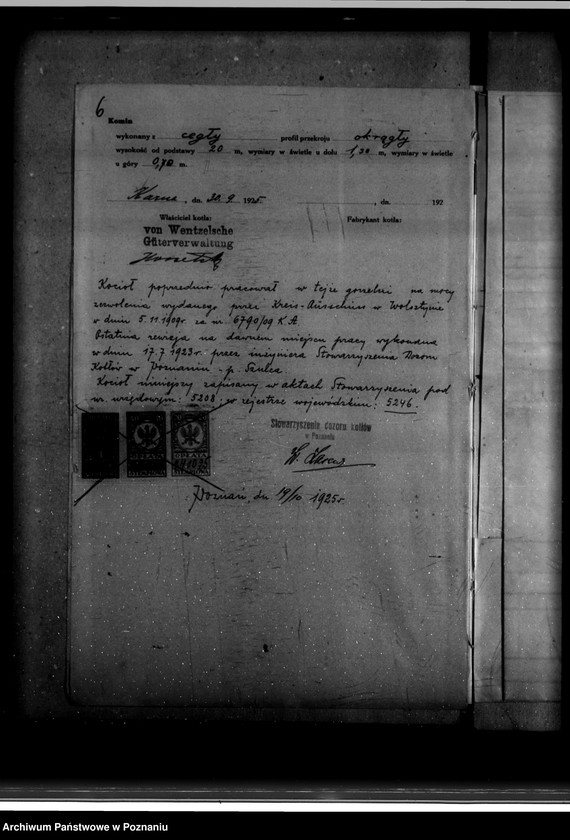 6
Komin
wykonany z cegły profil przekroju okrągły
wysokość od podstawy 20 m, wymiary w świetle u dołu 1,30 m, wymiary w świetle
u góry 0,70 m.
Karna, dn. 30.9 1925. , dn. 192
Właściciel kotła: Fabrykant kotła:
von Wentzelsche
Güterverwaltung
Kocioł poprzednio pracował w tejże gorzelni na mocy
zezwolenia wydanego przez Kreis-Ausschuss w Wolsztynie
w dniu 5.11.1909r. za nr. 6790/09 K.A
Ostatnia rewizja na dawnem miejscu pracy wykonana
w dniu 17.7.1923r. przez inżyniera Stowarzyszenia Dozoru
Kotłów w Poznaniu - p.
Kocioł niniejszy zapisany w aktach Stowarzyszenia pod
nr. urzędowym: 5208 w rejestrze wojewódzkim: 5246.
Stowarzyszenie dozoru kotłów
w Poznaniu
OPŁATA
OPŁATA
Poznań, dn 19/10 1925r.
Archiwum Państwowe w Poznaniu